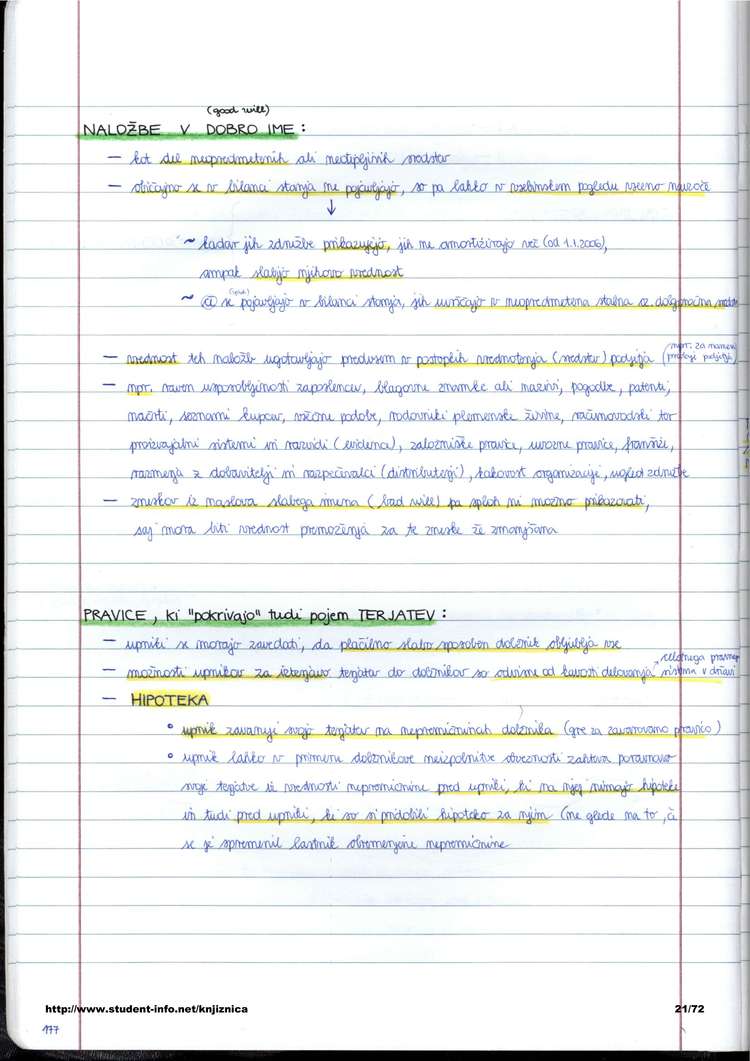 (good will)
NALOŽBE V DOBRO IME:
– kot del neopredmetenih ali neotipljivih sredstev
– običajno se v bilanci stanja ne pojavljajo, so pa lahko v vsebinskem pogledu vseeno navzoče
↓
~ kadar jih združbe prikazujejo, jih ne amortizirajo več (od 1.1.2006),
ampak slabijo njihovo vrednost
~ @ se pojavljajo v bilanci stanja, jih uvrščajo v neopredmetena stalna oz. dolgoročna sredstva
– vrednost teh naložb ugotavljajo predvsem v postopkih vrednotenja (sredstev) podjetja (npr. za namen prodaje podjetja)
– npr. raven usposobljenosti zaposlencev, blagovne znamke ali nazivi, pogodbe, patenti,
načrti, seznami kupcev, vzorčne podobe, rodovniki plemenske živine, računovodski ter
proizvajalni sistemi in razvidi (evidenca), založniške pravice, uvozne pravice, franšize,
razmerja z dobavitelji in razpečevalci (distributerji), kakovost organizacije, ugled združbe
– zneskov iz naslova slabega imena (bad will) pa sploh ni možno prikazovati,
saj mora biti vrednost premoženja za te zneske že zmanjšana
PRAVICE, ki "pokrivajo" tudi pojem TERJATEV:
– upniki se morajo zavedati, da plačilno slabo sposoben dolžnik obljublja vse
– možnosti upnikov za izterjavo terjatev do dolžnikov so odvisne od kakovosti delovanja celotnega pravnega sistema v državi
– HIPOTEKA
• upnik zavaruje svojo terjatev na nepremičninah dolžnika (gre za zavarovano pravico)
• upnik lahko v primeru dolžnikove neizpolnitve obveznosti zahteva poravnavo
svoje terjatve iz vrednosti nepremičnine pred upniki, ki na njej nimajo hipoteke
in tudi pred upniki, ki so si pridobili hipoteko za njim (ne glede na to, če
se je spremenil lastnik obremenjene nepremičnine
http://www.student-info.net/knjiznica
21/72
177